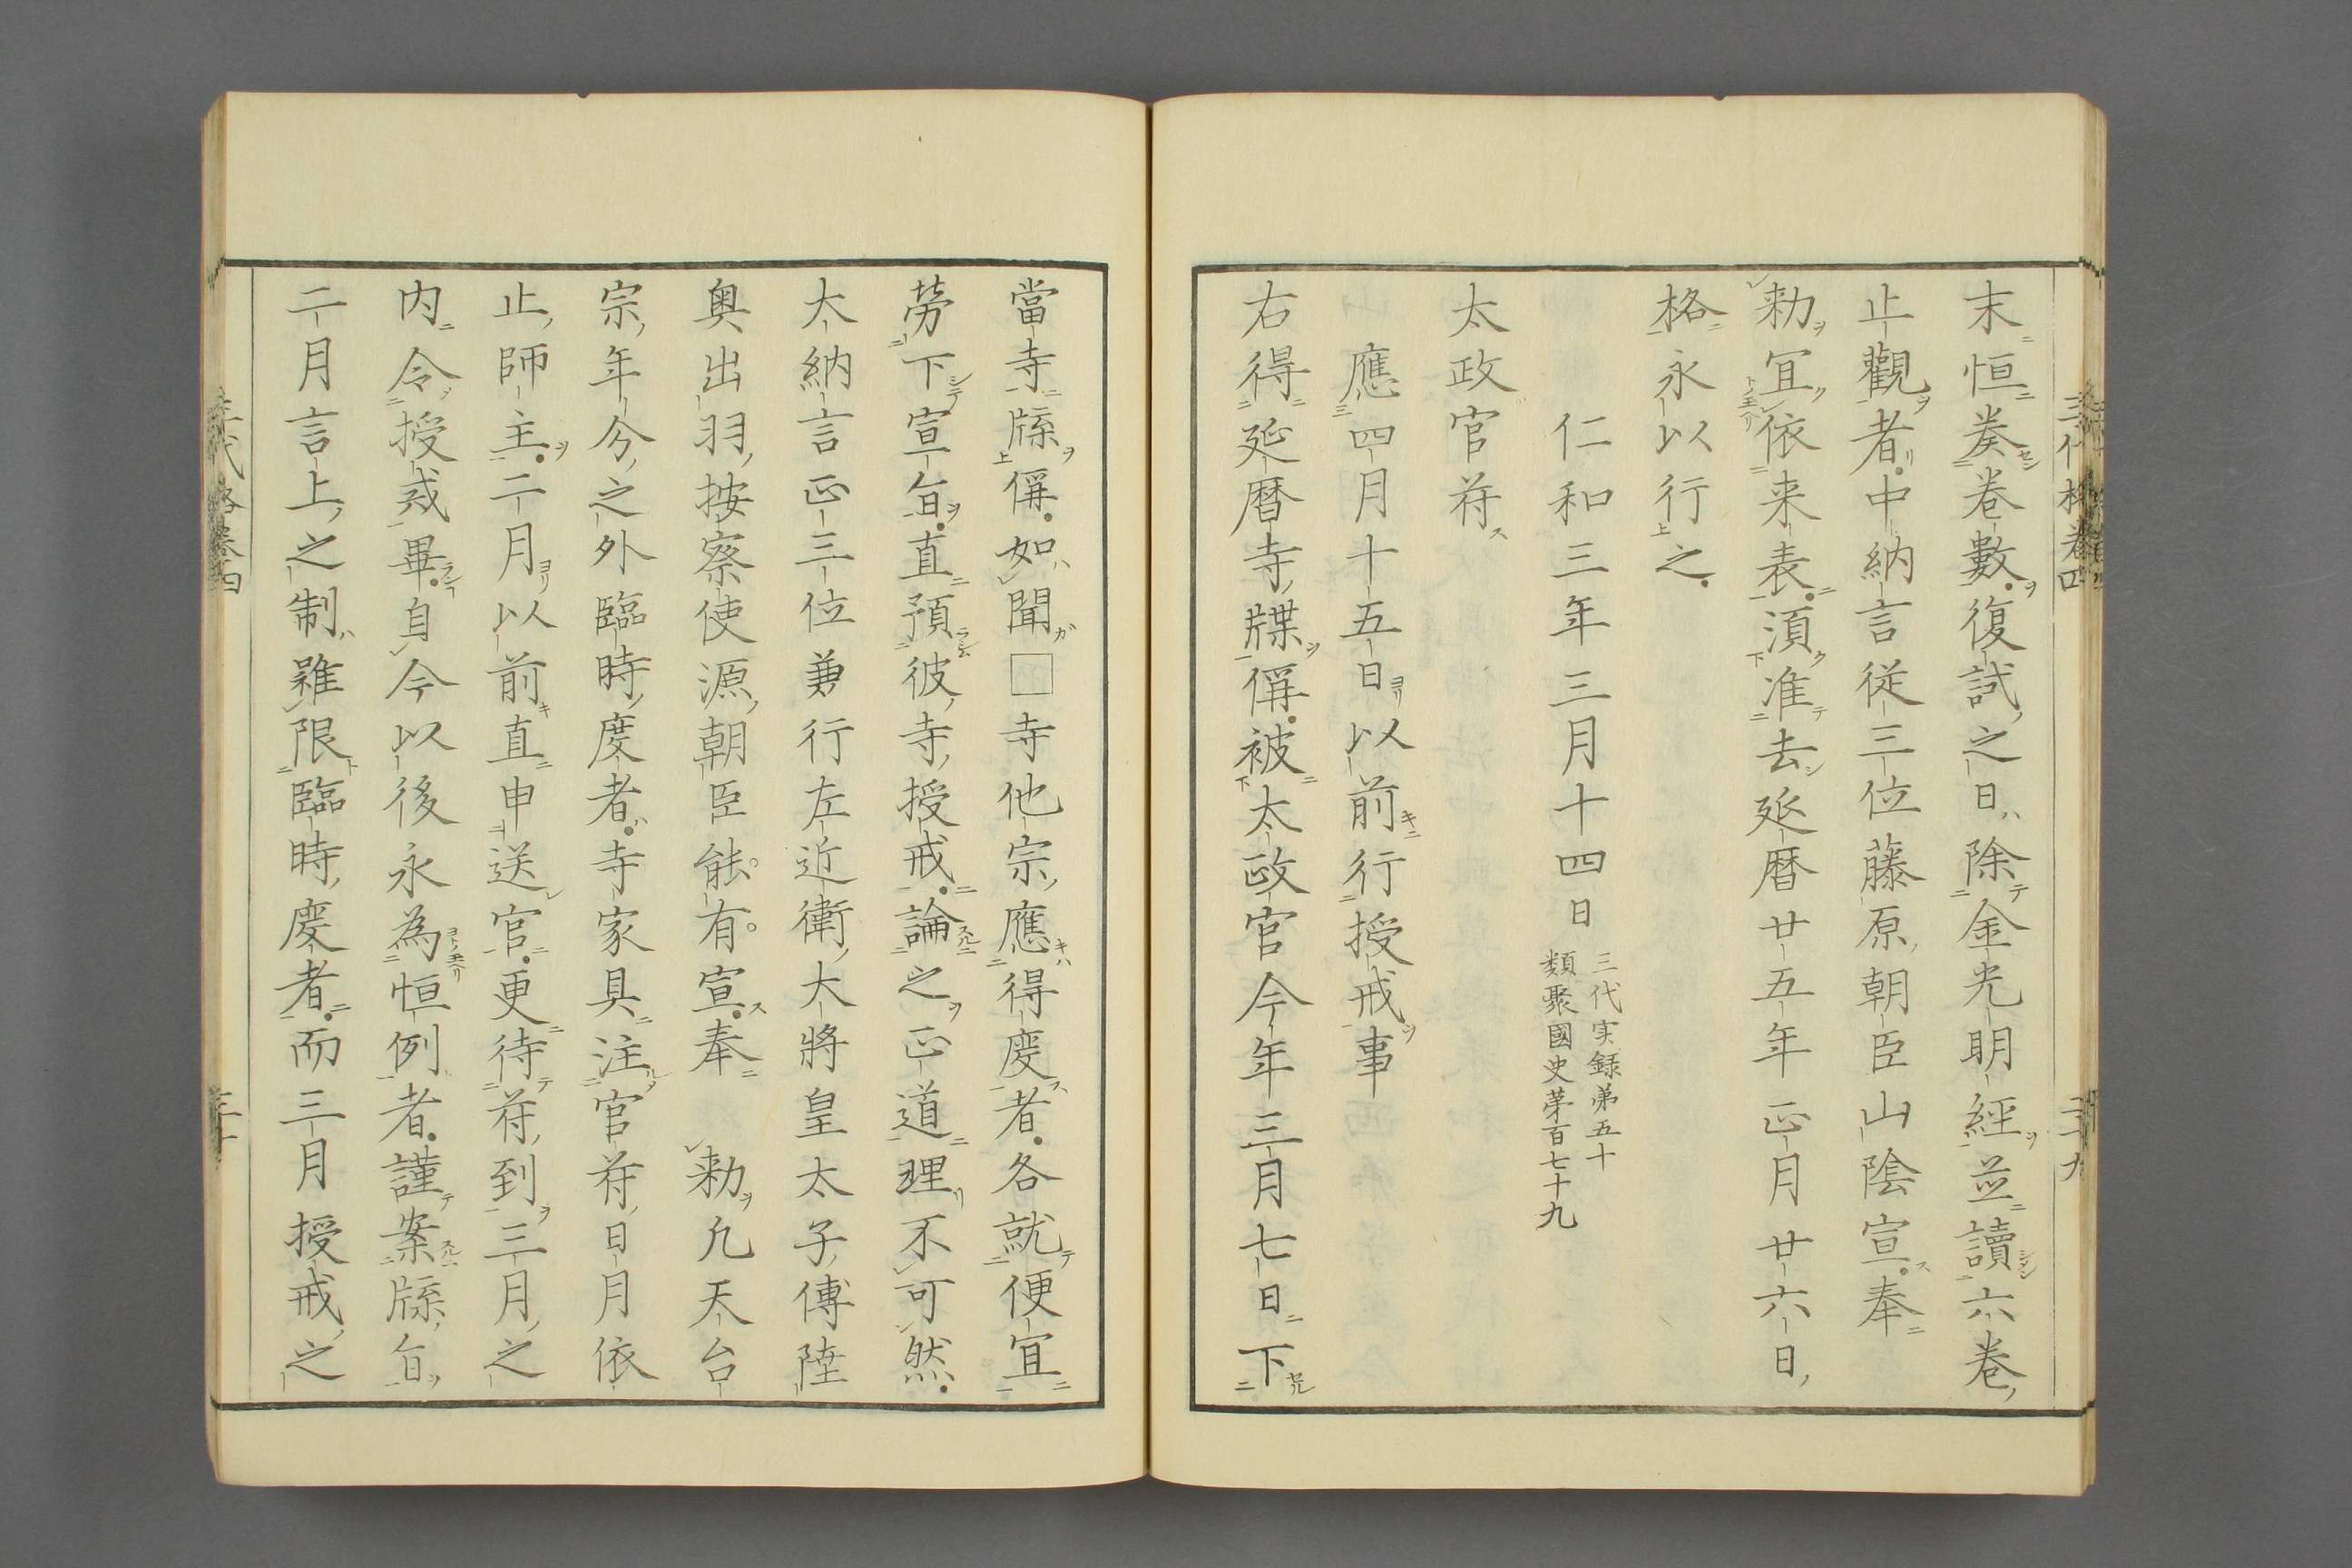 三代格卷四
二十九
末恒奏卷數復試之日除金光明經並讀六卷
止觀者中納言従三位藤原朝臣山陰宣奉
勅宜依来表須准去延暦廿五年正月廿六日
格永以行之
仁和三年三月十四日
三代実録弟五十
類聚國史苐百七十九
太政官苻
應四月十五日以前行授戒事
右得延暦寺牒偁被太政官今年三月七日下
當寺牒偁如聞□寺他宗應得度者各就便宜
勞下宣旨直預彼寺授戒論之正道理不可然
大納言正三位兼行左近衛大將皇太子傳陸
奥出羽按察使源朝臣能有宣奉　勅凡天台
宗年分之外臨時度者寺家具注官苻日月依
止師主二月以前直申送官更待苻到三月之
内令授戒畢自今以後永為恒例者謹案牒旨
二月言上之制雖限臨時度者而三月授戒之
三代格卷四
三十